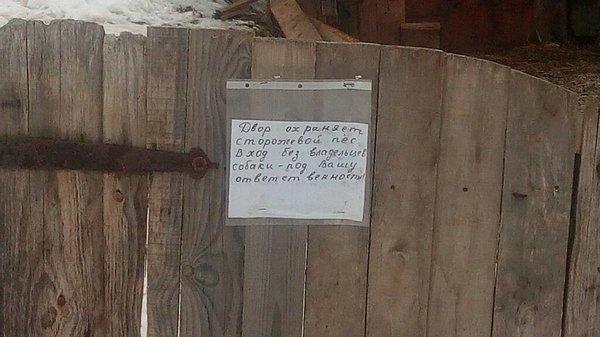 Двор охраняет
сторожевой пёс.
Вход без владельцев
собаки - под Вашу
ответственность!